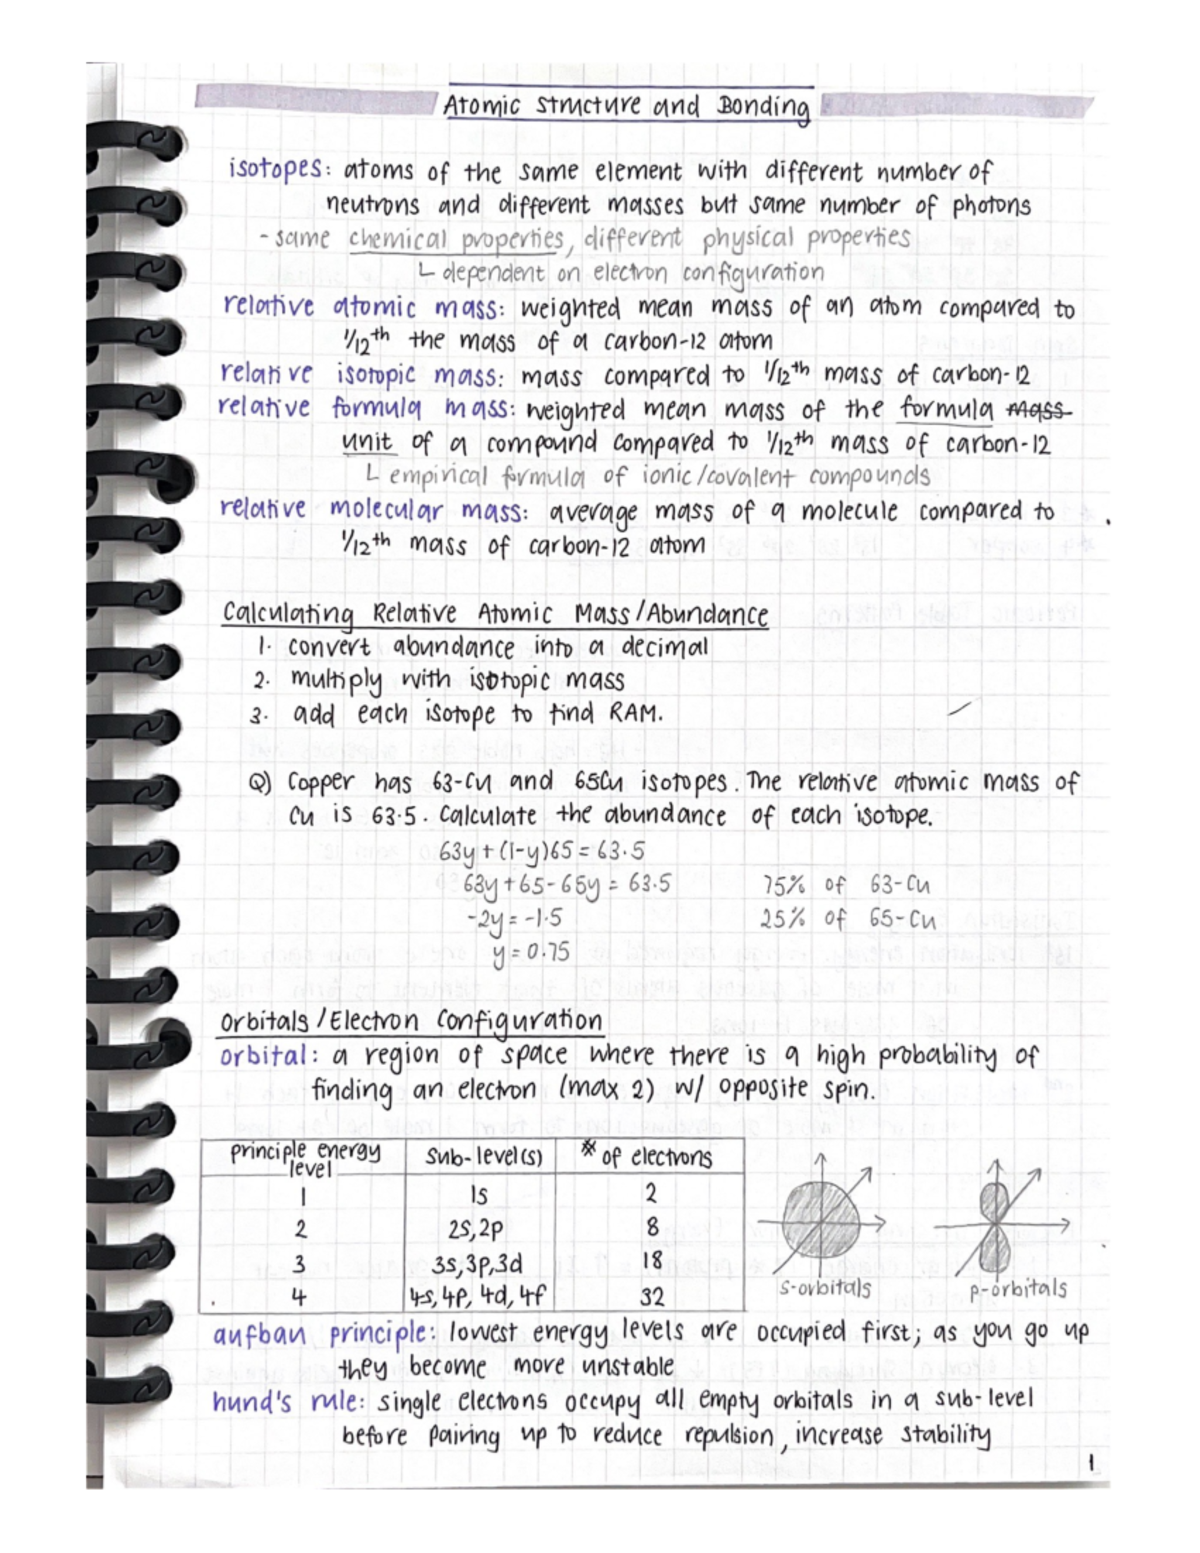 Atomic structure and Bonding
isotopes: atoms of the same element with different number of
neutrons and different masses but same number of photons
- same chemical properties, different physical properties
└ dependent on electron configuration
relative atomic mass: weighted mean mass of an atom compared to
1/12th the mass of a carbon-12 atom
relative isotopic mass: mass compared to 1/12th mass of carbon-12
relative formula mass: weighted mean mass of the formula mass
unit of a compound compared to 1/12th mass of carbon-12
└ empirical formula of ionic/covalent compounds
relative molecular mass: average mass of a molecule compared to
1/12th mass of carbon-12 atom
Calculating Relative Atomic Mass/Abundance
1. convert abundance into a decimal
2. multiply with isotopic mass
3. add each isotope to find RAM.
Q) Copper has 63-Cu and 65Cu isotopes. The relative atomic mass of
Cu is 63.5. Calculate the abundance of each isotope.
63y + (1-y)65 = 63.5
63y + 65 - 65y = 63.5 75% of 63-Cu
-2y = -1.5 25% of 65-Cu
y = 0.75
Orbitals/Electron Configuration
orbital: a region of space where there is a high probability of
finding an electron (max 2) w/ opposite spin.
principle energy level sub-level(s) # of electrons
1 1s 2
2 2s,2p 8
3 3s,3p,3d 18
4 4s,4p,4d,4f 32
s-orbitals p-orbitals
aufbau principle: lowest energy levels are occupied first; as you go up
they become more unstable
hund's rule: single electrons occupy all empty orbitals in a sub-level
before pairing up to reduce repulsion, increase stability
1